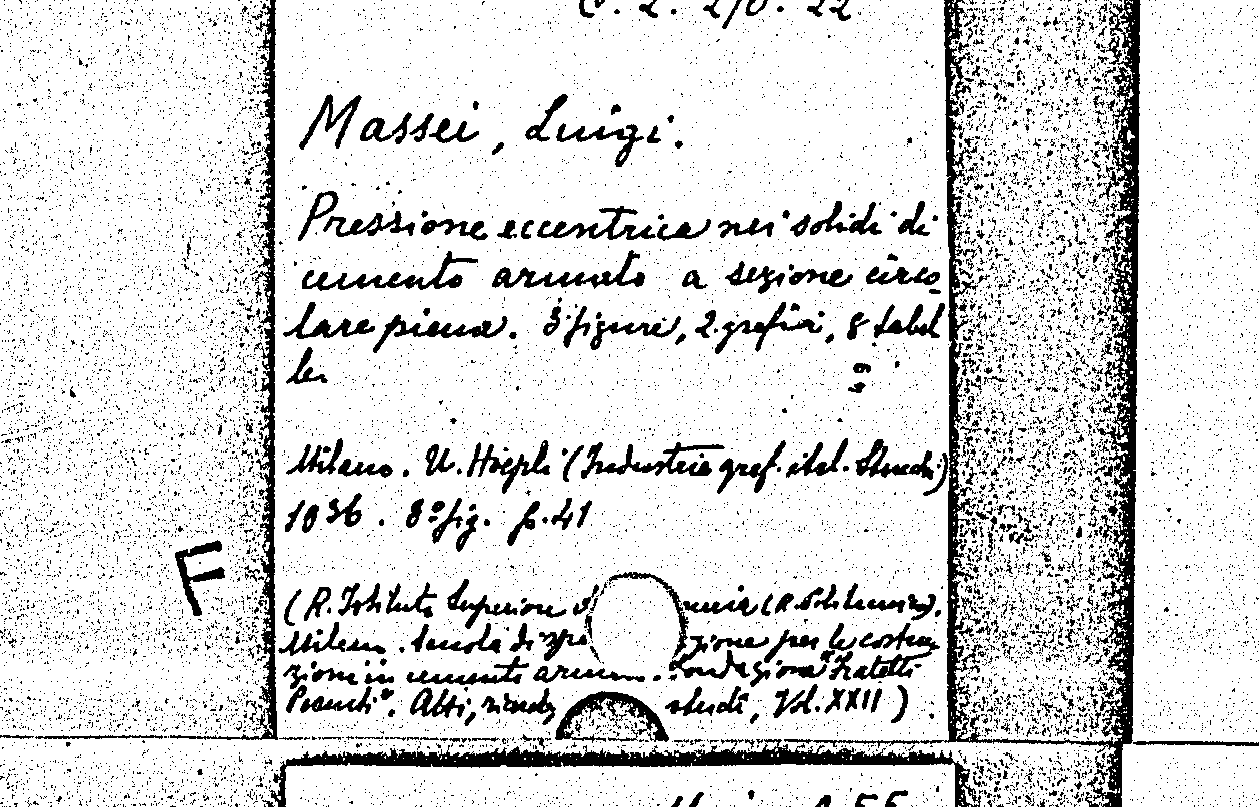 Massei, Luigi.
Pressione eccentrica nei solidi di
cemento armato a sezione circo-
lare piena. 3 figure, 2. grafici, 8 tabel
le.
Milano. U. Hoepli (Industrie graf. ital. Stucchi)
1936. 8° fig. p. 41
F
(R. Istituto Superiore
Milano. Scuola di per le costru
zioni in cemento Fondazione "Fratelli
Pesenti". Atti, studi, Vol. XXII)